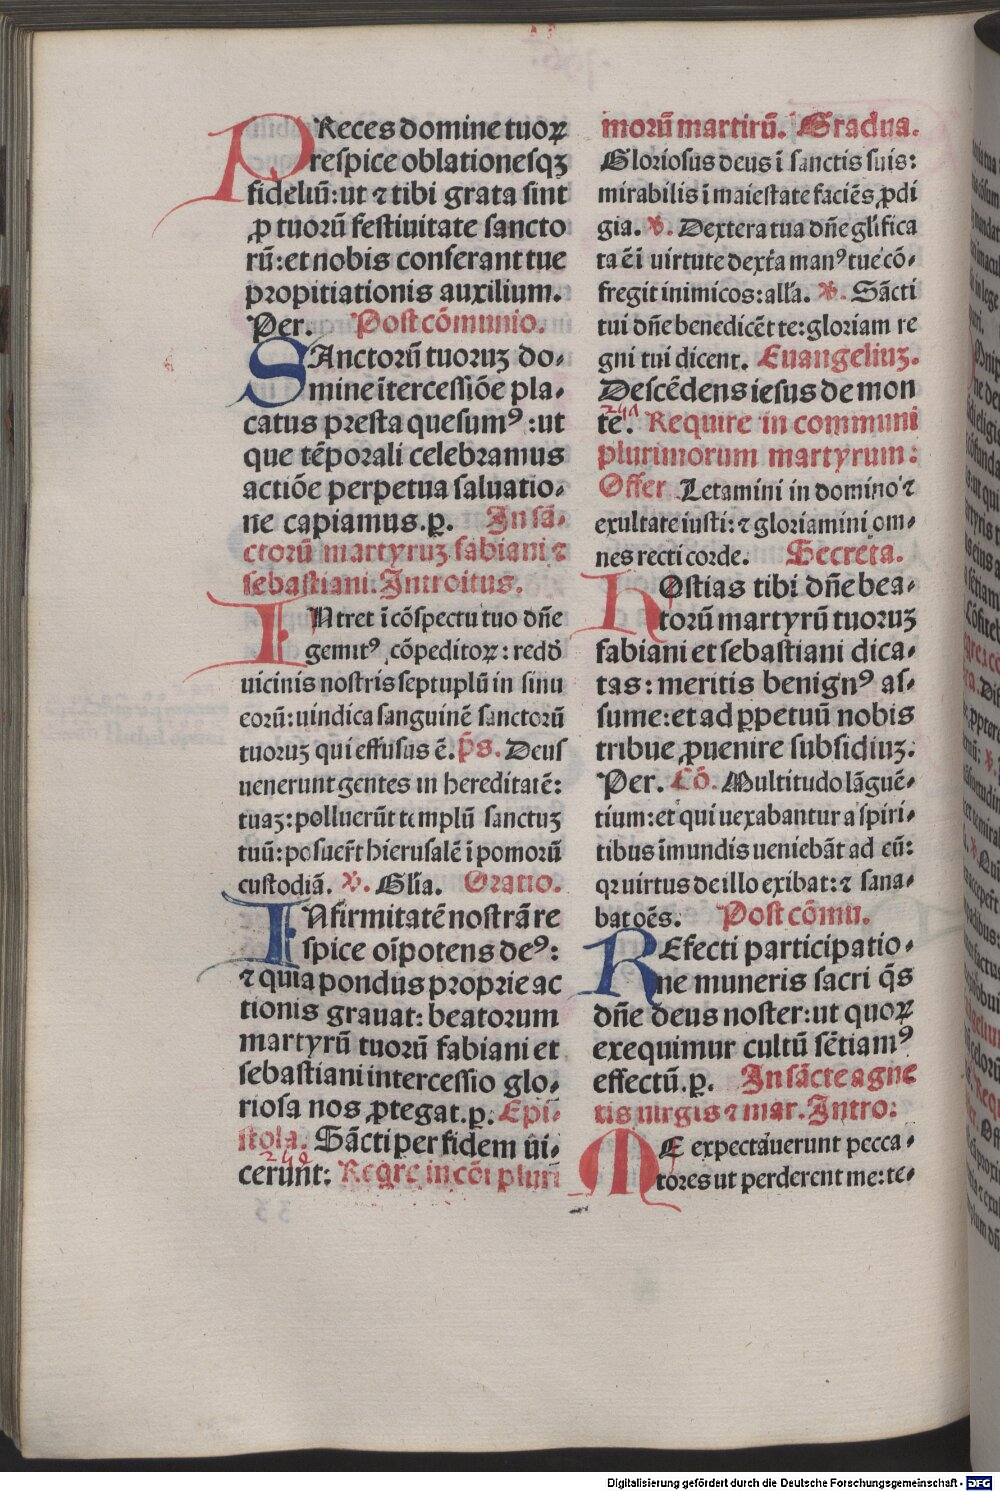 PReces domine tuoꝝ
respice oblationesqꝫ
fideliū: ut ⁊ tibi grata sint
ꝓ tuorū festiuitate sancto
rū: et nobis conferant tue
propitiationis auxilium.
Per. Post cōmunio.
SAnctorū tuorūꝫ do⸗
mine ītercessiōe pla⸗
catus presta quesumꝰ: ut
que tēporali celebramus
actiōe perpetua saluatio⸗
ne capiamus. ꝑ. In sā⸗
ctorū martyruꝫ fabiani ⁊
sebastiani. Introitus.
INtret ī cōspectu tuo dn̄e
gemitꝰ cōpeditoꝝ: redd
uicinis nostris septuplū in sinu
eorū: uindica sanguinē sanctorū
tuoruꝫ qui effusus ē. p̄s. Deus
uenerunt gentes in hereditatē:
tuaꝫ: polluerūt templū sanctuꝫ
tuū: posuer̄t hierusalē ī pomorū
custodiā. ℣. Gl̄ia. Oratio.
INfirmitatē nostrā re
spice oīpotens deꝰ:
⁊ quia pondus proprie ac
tionis grauat: beatorum
martyrū tuorū fabiani et
sebastiani intercessio glo⸗
riosa nos ꝓtegat. ꝑ. Epi⸗
stola. Sācti per fidem ūi⸗
cerunt: Reqre in cōi pluri
imorū martirū. Gradua.
Gloriosus deus ī sanctis suis:
mirabilis ī maiestate faciēs ꝓdi
gia. ℣. Dextera tua dn̄e gl̄ifica
ta ē ī uirtute dext̄a manꝰ tue cō⸗
fregit inimicos: all̄a. ℣. Sācti
tui dn̄e benedicēt te: gloriam re
gni tui dicent. Euangeliuꝫ.
Descēdens iesus de mon
te. Require in communi
plurimorum martyrum:
Offer Letamini in domino ⁊
exultate iusti: ⁊ gloriamini om⸗
nes recti corde. Secreta.
HOstias tibi dn̄e bea⸗
torū martyrū tuoruꝫ
fabiani et sebastiani dica⸗
tas: meritis benignꝰ as⸗
sume: et ad ꝑpetuū nobis
tribue ꝓuenire subsidiuꝫ.
Per. Cō. Multitudo lāguē⸗
tium: et qui uexabantur a spiri⸗
tibus īmundis ueniebāt ad eū:
qꝛ uirtus de illo exibat: ⁊ sana⸗
bat oēs. Post cōmu.
REfecti participatio⸗
ne muneris sacri q̄s
dn̄e deus noster: ut quoꝝ
exequimur cultū sētiamꝰ
effectū. ꝑ. In sācte agne
tis uirgīs ⁊ mar. Intro:
ME expectauerunt pecca⸗
tores ut perderent me: te⸗
Digitalisierung gefördert durch die Deutsche Forschungsgemeinschaft - DFG